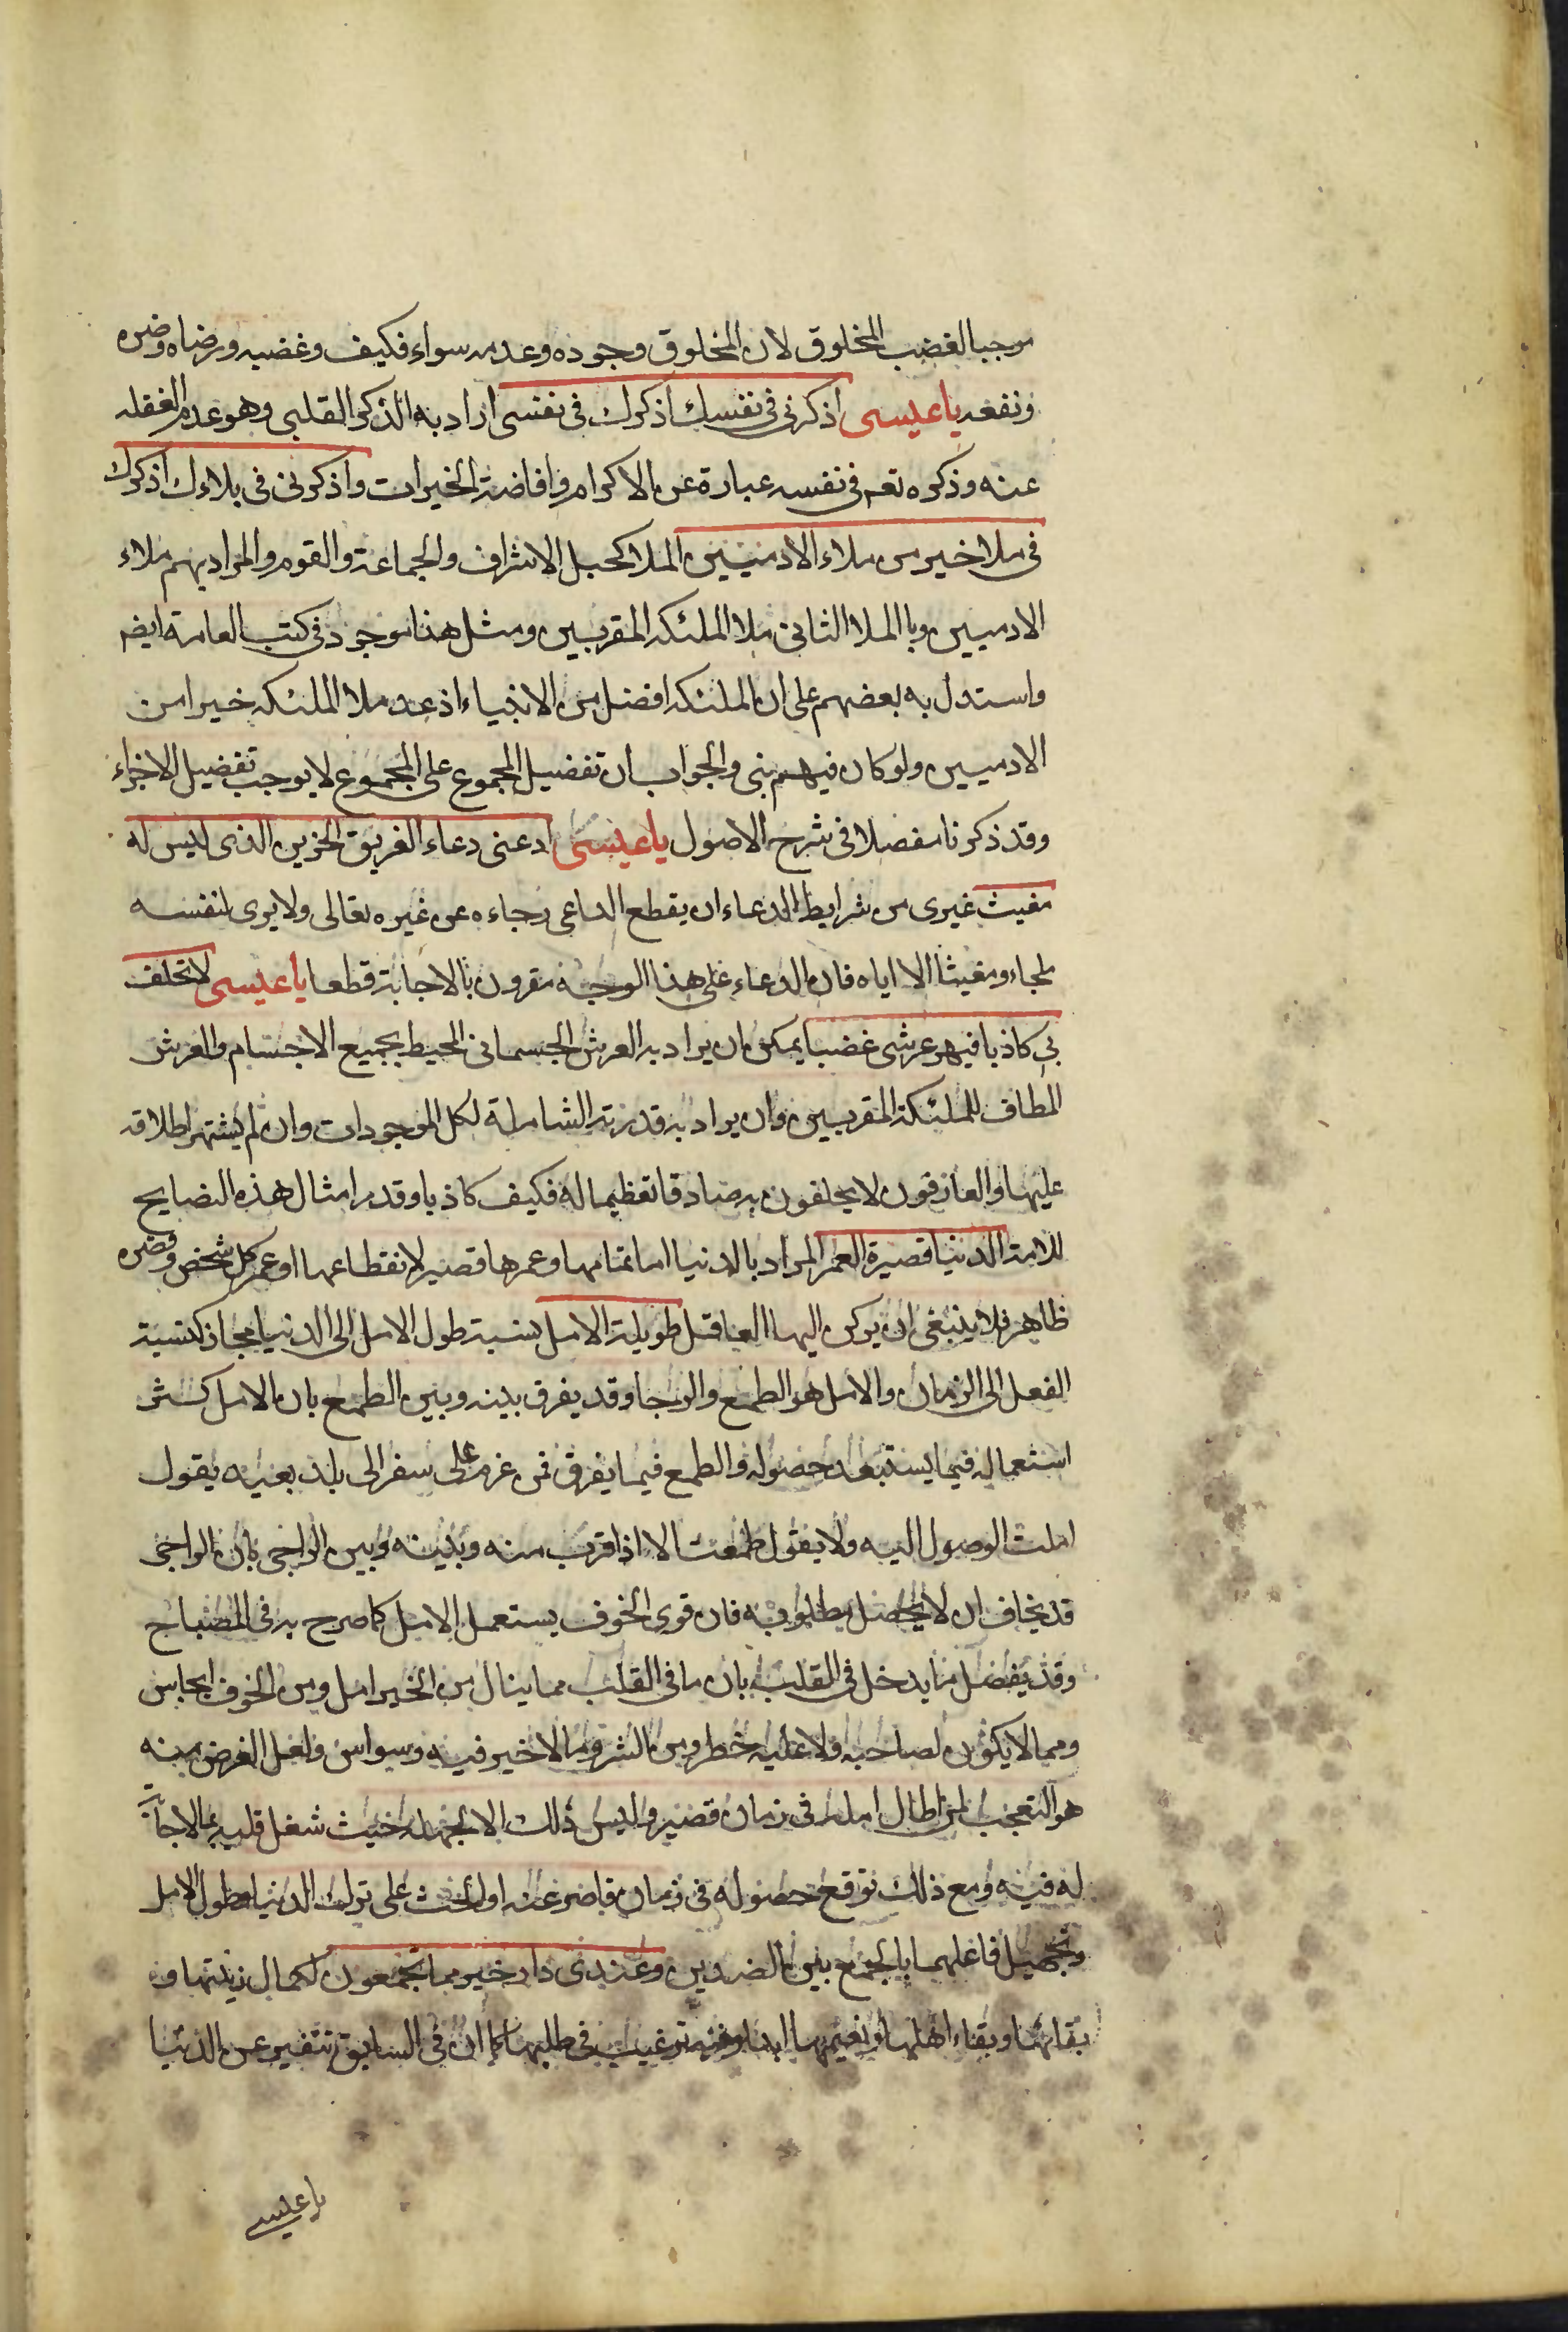 موجبا لغضب المخلوق لان المخلوق وجوده وعدمه سواء فكيف وغضبه ورضاه وضره
ونفعه يا عيسى اذكرنى فى نفسك اذكرك فى نفسى اراد به الذكر القلبى وهو عدم الغفلة
عنه وذكره تعه فى نفسه عبارة عن الاكرام وافاضة الخيرات واذكرنى فى ملاءك اذكرك
فى ملا خير من ملاء الادميين الملا كجبل الاشراف والجماعة والقوم والمراد بهم ملاء
الادميين وبا الملا الثانى ملا الملئكة المقربين ومثل هذا موجود فى كتب العامة ايضه
واستدل به بعضهم على ان الملئكة افضل من الانبياء اذ عد ملا الملئكة خيرا من
الادميين ولو كان فيهم نبى والجواب ان تفضيل المجموع على المجموع لا يوجب تفضيل الاجزاء
وقد ذكرنا مفصلا فى شرح الاصول يا عيسى ادعنى دعاء الغريق الحزين الذى ليس له
مغيث غيرى من شرايط الدعاء ان يقطع الداعى رجاءه عن غيره تعالى ولا يرى لنفسه
ملجاء ومغيثا الا اياه فان الدعاء على هذا الوجه مقرون بالاجابة قطعا يا عيسى لا تحلف
بى كاذبا فيهز عرشى غضبا يمكن ان يراد به العرش الجسمانى المحيط بجميع الاجسام والعرش
المطاف للملئكة المقربين وان يراد به قدرته الشاملة لكل الموجودات وان لم يشتهر اطلاقه
عليها والعارفون لا يحلفون به صادقا تعظيما له فكيف كاذبا وقد مر امثال هذه النصايح
للامة الدنيا قصيرة العمر المراد بالدنيا اما تمامها وعمرها قصير لانقطاعها او عمر كل شخص وقصره
ظاهر فلا ينبغى ان يركن اليها العاقل طويلة الامل نسبة طول الامل الى الدنيا مجاز كنسبة
الفعل الى الزمان والامل هو الطمع والرجا وقد يفرق بينه وبين الطمع بان الامل كثر
استعماله فيما يستبعد حصوله والطمع فيما يقرب فمن عزم على سفر الى بلد بعيد يقول
املت الوصول اليه ولا يقول طمعت الا اذا قرب منه وبينه وبين الراجى بان الراجى
قد يخاف ان لا يحصل مطلوبه فان قوى الخوف يستعمل الامل كما صرح به فى المصباح
وقد يفصل ما يدخل فى القلب بان ما فى القلب مما ينال من الخير امل ومن الخوف ايجاس
ومما لا يكون لصاحبه ولا عليه خطر ومن الشر وما لا خير فيه وسواس ولعل الغرض منه
هو التعجب لمن اطال امله فى زمان قصير وليس ذلك الا لجهله حيث شغل قلبه بما لا حاجة
له فيه ومع ذلك توقع حصوله فى زمان قاصر عنه او الحث على ترك الدنيا وطول الامل
وتجهيل فاعلهما بالجمع بين الضدين وعندى دار خير مما تجمعون لكمال زينتها و
بقائها وبقاء اهلها ونعيمها ابدا وفيه ترغيب فى طلبها كما ان فى السابق تنفير عن الدنيا
يا عيسى